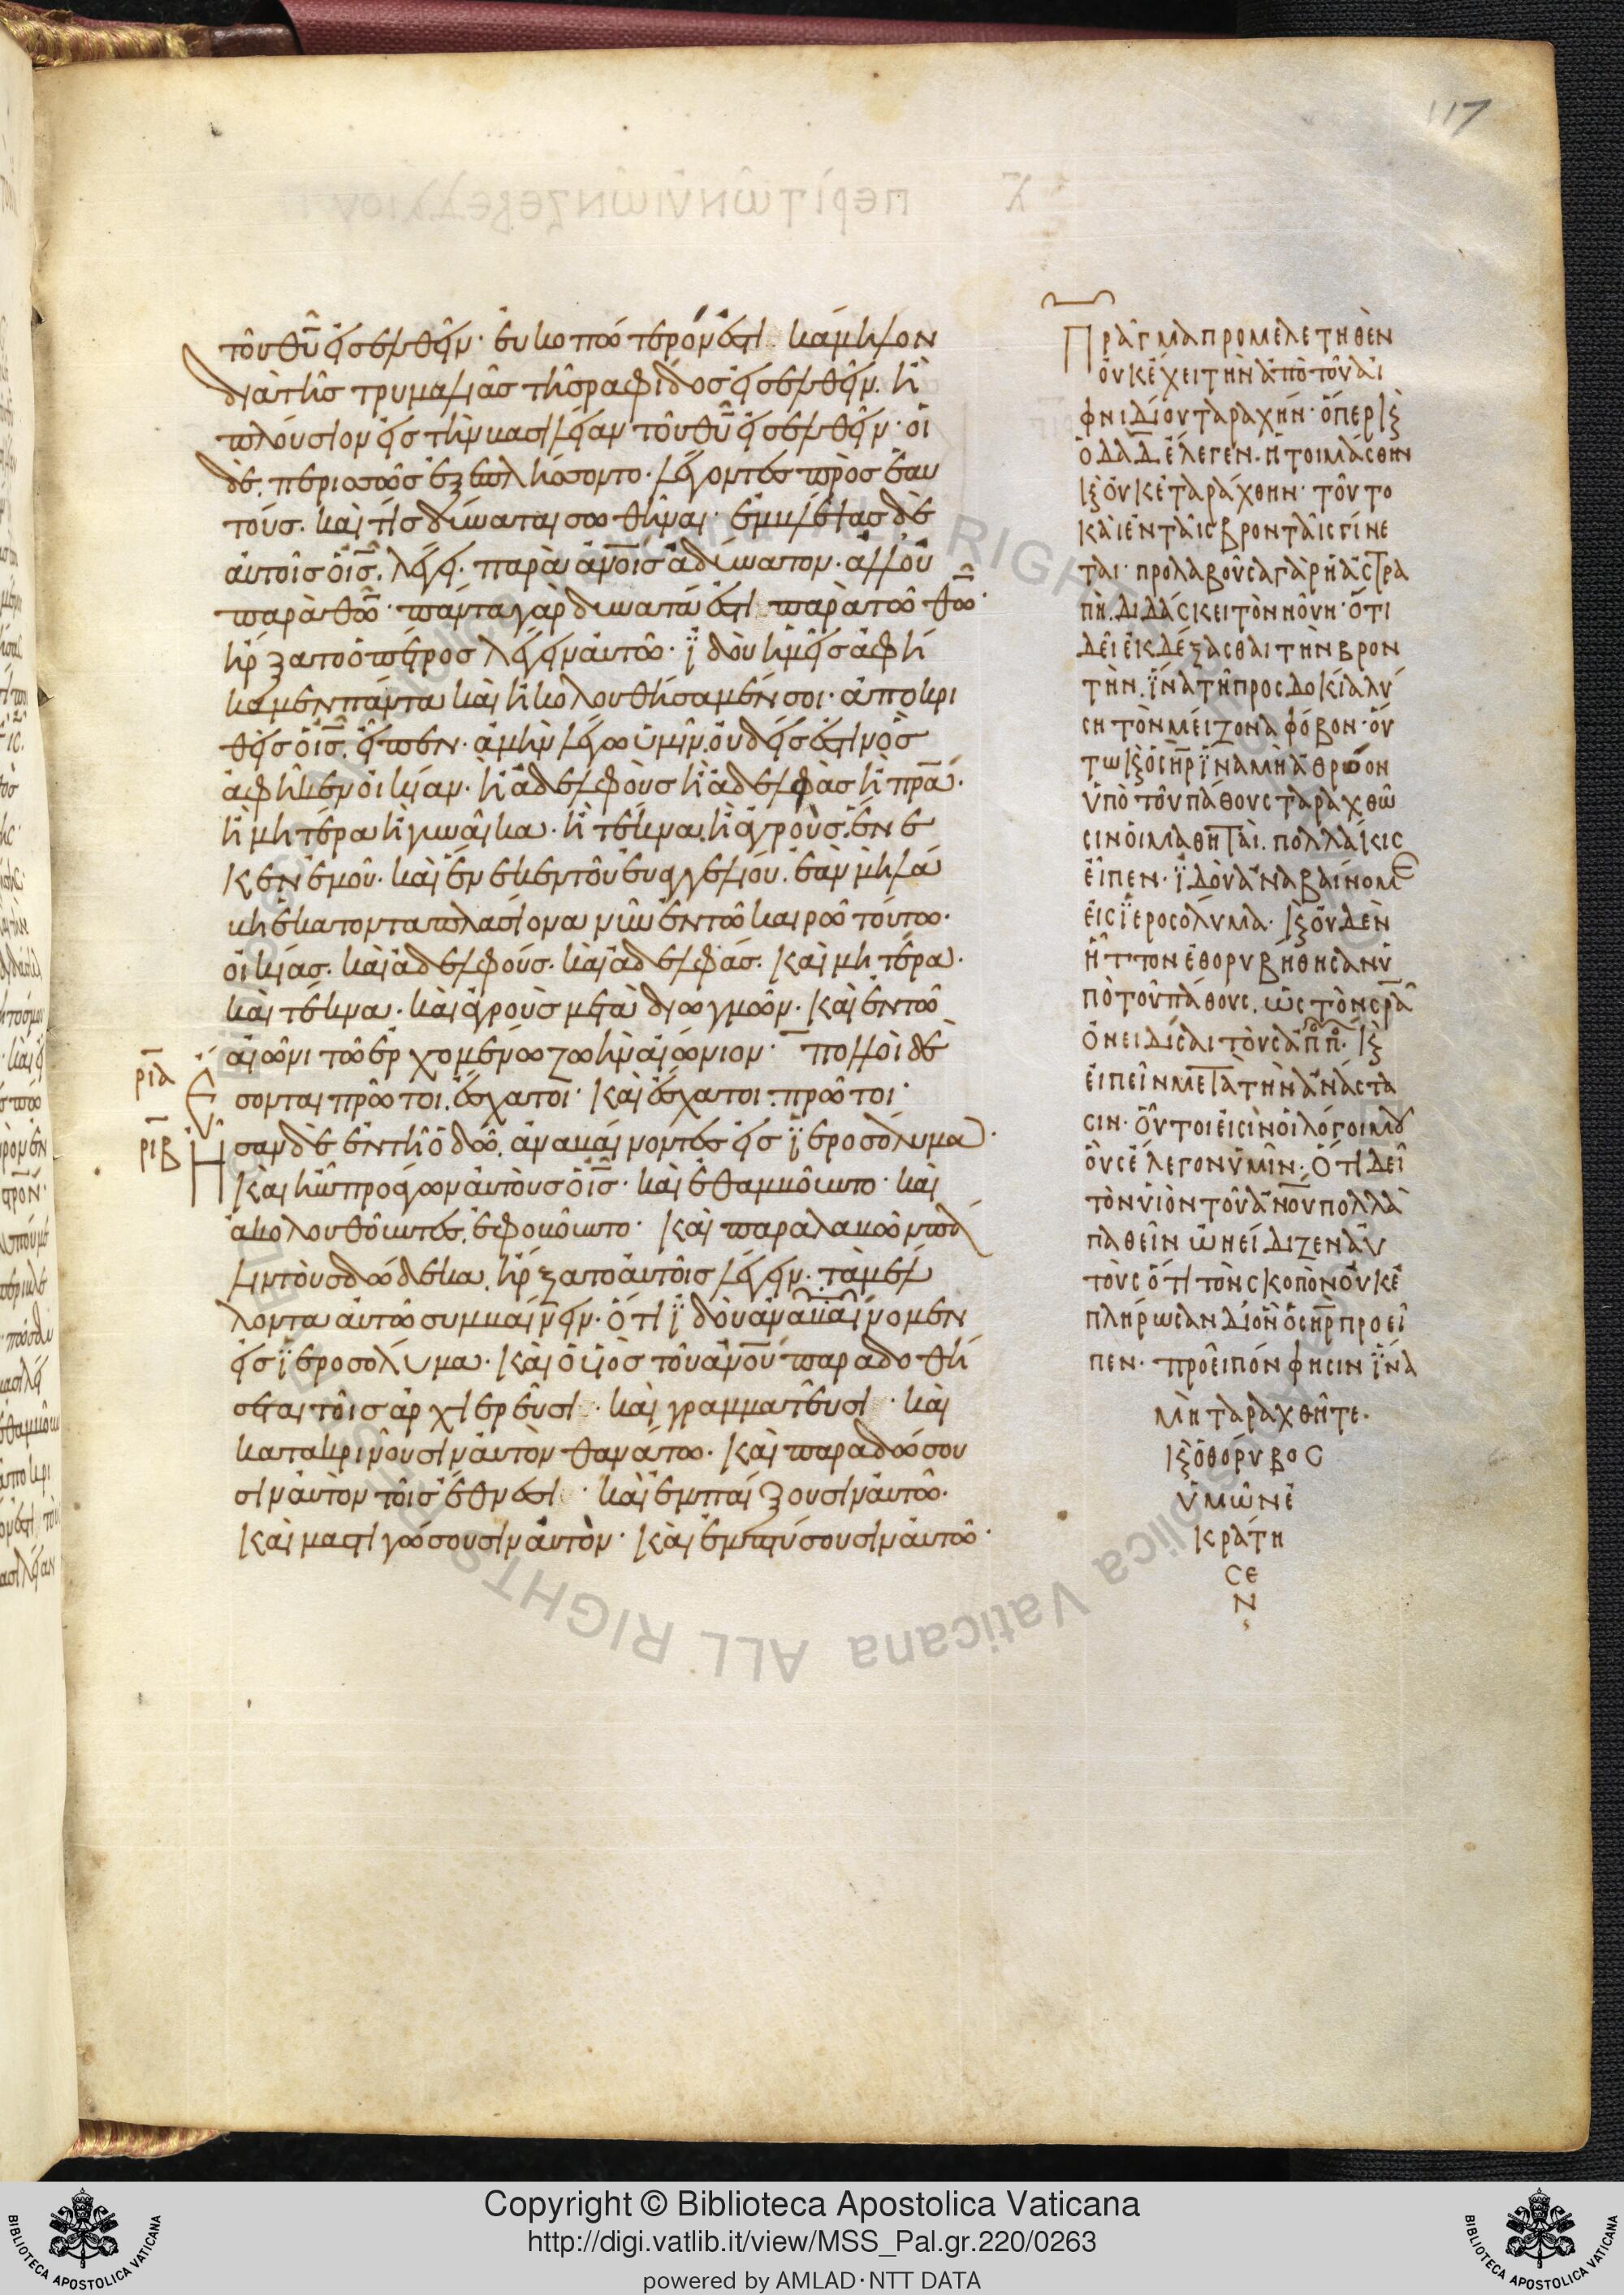 117
τοῦ θ̅υ̅ εἰσελθεῖν· εὐκοπώτερόν ἐστι κάμηλον
διὰ τῆς τρυμαλιᾶς τῆς ραφίδος εἰσελθεῖν. ἢ
πλούσιον εἰς τὴν βασιλείαν τοῦ θ̅υ̅ εἰσελθεῖν· οἱ
δὲ. περισσῶς ἐξεπλήσσοντο. λέγοντες πρὸς ἑαυ
τούς. καὶ τίς δύναται σωθῆναι· ἐμβλέψας δὲ
αὐτοῖς ὁ ι̅ς̅. λέγει. παρὰ ἀν̅οις ἀδύνατον. ἀλλ' οὐ
παρὰ θ̅ω̅· πάντα γὰρ δυνατά ἐστι παρὰ τῶ θ̅ω̅·
ἤρξατο ὁ πέτρος λέγειν αὐτῶ· ἰδοὺ ἡμεῖς ἀφή
καμεν πάντα καὶ ἠκολουθήσαμέν σοι· ἀποκρι
θεὶς ὁ ι̅ς̅. εἶπεν· ἀμὴν λέγω ὑμῖν. οὐδείς ἐστιν ὃς
ἀφῆκεν οἰκίαν. ἢ ἀδελφοὺς ἢ ἀδελφὰς ἢ π̅ρ̅α̅.
ἢ μητέρα ἢ γυναῖκα. ἢ τέκνα. ἢ ἀγροὺς. ἕνε
κεν ἐμοῦ. καὶ ἕνεκεν τοῦ εὐαγγελίου. ἐὰν μὴ λά
βη ἑκατονταπλασίονα νῦν ἐν τῶ καιρῶ τούτω.
οἰκίας. καὶ ἀδελφούς. καὶ ἀδελφάς. καὶ μητέρα.
καὶ τέκνα. καὶ ἀγροὺς μετὰ διωγμῶν. καὶ ἐν τῶ
ρια αἰῶνι τῶ ἐρχομένω ζωὴν αἰώνιον· πολλοὶ δὲ
Ἔσονται πρῶτοι. ἔσχατοι· καὶ ἔσχατοι. πρῶτοι·
ριβ Ἦσαν δὲ ἐν τῆ ὁδῶ. ἀναβαίνοντες εἰς ἱεροσόλυμα.
καὶ ἦν προάγων αὐτοὺς ὁ ι̅ς̅· καὶ ἐθαμβοῦντο· καὶ
ἀκολουθοῦντες. ἐφοβοῦντο· καὶ παραλαβὼν πά
λιν τοὺς δώδεκα. ἤρξατο αὐτοῖς λέγειν. τὰ μέλ
λοντα αὐτῶ συμβαίνειν. ὅτι ἰδοὺ ἀναβαίνομεν
εἰς ἱεροσόλυμα. καὶ ὁ υἱὸς τοῦ ἀν̅ου παραδοθή
σεται τοῖς ἀρχιερεῦσι. καὶ γραμματεῦσι. καὶ
κατακρινοῦσιν αὐτὸν θανάτω. καὶ παραδώσου
σιν αὐτὸν τοῖς ἔθνεσι. καὶ ἐμπαίξουσιν αὐτῶ.
καὶ μαστιγώσουσιν αὐτὸν· καὶ ἐμπτύσουσιν αὐτῶ·
Πρᾶγμα προμελετηθὲν
οὐκ ἔχει τὴν ἀπὸ τοῦ αἰ
φνιδίου ταραχήν· ὅπερ κ̀
ὁ δα̅δ̅ ἔλεγεν. ἡτοιμάσθην
κ̀ οὐκ ἐταράχθην· τοῦτο
καὶ ἐν ταῖς βρονταῖς γίνε
ται· προλαβοῦσα γὰρ ἡ ἀστρα
πὴ. διδάσκει τὸν νοῦν· ὅτι
δεῖ ἐκδέξασθαι τὴν βρον
τὴν. ἵνα τῆ προσδοκία λύ
ση τὸν μείζονα φόβον· οὕ
τω κ̀ ὁ σ̅η̅ρ̅ ἵνα μὴ ἀθρόον
ὑπὸ τοῦ πάθους ταραχθῶ
σιν οἱ μαθηταὶ. πολλάκις
εἶπεν· ἰδοὺ ἀναβαίνομε
εἰς ἱεροσόλυμα· κ̀ οὐδὲν
ἧττον ἐθορυβήθησαν ὑ
πὸ τοῦ πάθους. ὡς τὸν σ̅ρ̅α̅
ὀνειδίσαι τοὺς ἀππ. κ̀
εἰπεῖν μετὰ τὴν ἀνάστα
σιν· οὗτοι εἰσὶν οἱ λόγοι μου
οὓς ἔλεγον ὑμῖν· ὅτι δεῖ
τὸν υἱὸν τοῦ ἀν̅ου πολλὰ
παθεῖν ὠνείδιζεν αὐ
τοὺς ὅτι τὸν σκοπὸν οὐκ ἐ
πλήρωσαν δι' ὃν ὁ σ̅η̅ρ̅ προεῖ
πεν· προεῖπόν φησιν ἵνα
μὴ ταραχθῆτε·
κ̀ ὁ θόρυβος
ὑμῶν ἐ
κράτη
σε
ν
Copyright © Biblioteca Apostolica Vaticana
http://digi.vatlib.it/view/MSS_Pal.gr.220/0263
powered by AMLAD·NTT DATA
BIBLIOTECA APOSTOLICA VATICANA
BIBLIOTECA APOSTOLICA VATICANA